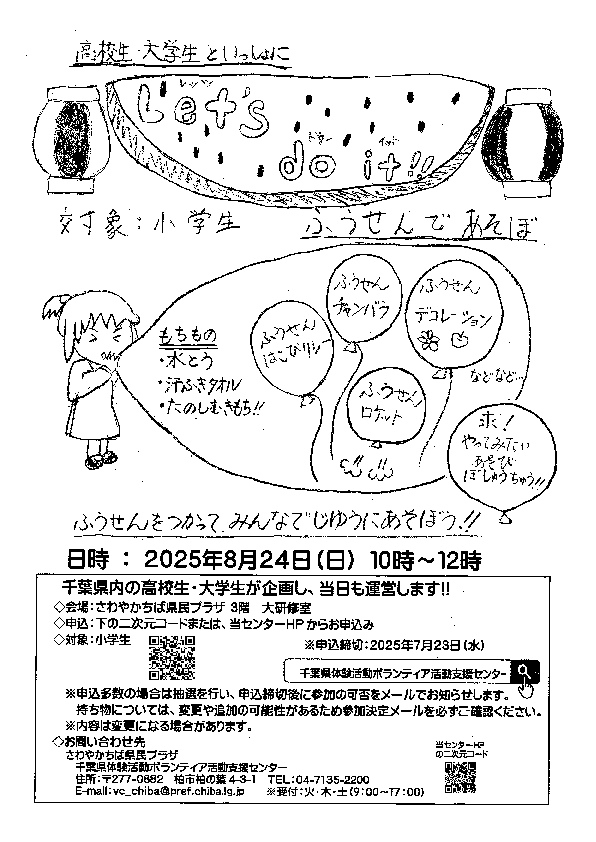 高校生・大学生といっしょに
レッツ
Let's
ドゥー イット
do it!!
対象：小学生
ふうせんであそぼ
もちもの
・水とう
・汗ふきタオル
・たのしむきもち!!
ふうせん
はこびリレー
ふうせん
チャンバラ
ふうせん
デコレーション
ふうせん
ロケット
などなど…
求！
やってみたい
あそび
ぼしゅうちゅう!!
ふうせんをつかって みんなでじゆうにあそぼう!!
日時：2025年8月24日(日) 10時～12時
千葉県内の高校生・大学生が企画し、当日も運営します!!
◇会場：さわやかちば県民プラザ 3階 大研修室
◇申込：下の二次元コードまたは、当センターHPからお申込み
◇対象：小学生
※申込締切：2025年7月23日(水)
千葉県体験活動ボランティア活動支援センター
※申込多数の場合は抽選を行い、申込締切後に参加の可否をメールでお知らせします。
持ち物については、変更や追加の可能性があるため参加決定メールを必ずご確認ください。
※内容は変更になる場合があります。
◇お問い合わせ先
さわやかちば県民プラザ
千葉県体験活動ボランティア活動支援センター
住所：〒277-0882 柏市柏の葉 4-3-1 TEL：04-7135-2200
E-mail：vc_chiba@pref.chiba.lg.jp ※受付：火・木・土(9:00～17:00)
当センターHP
の二次元コード